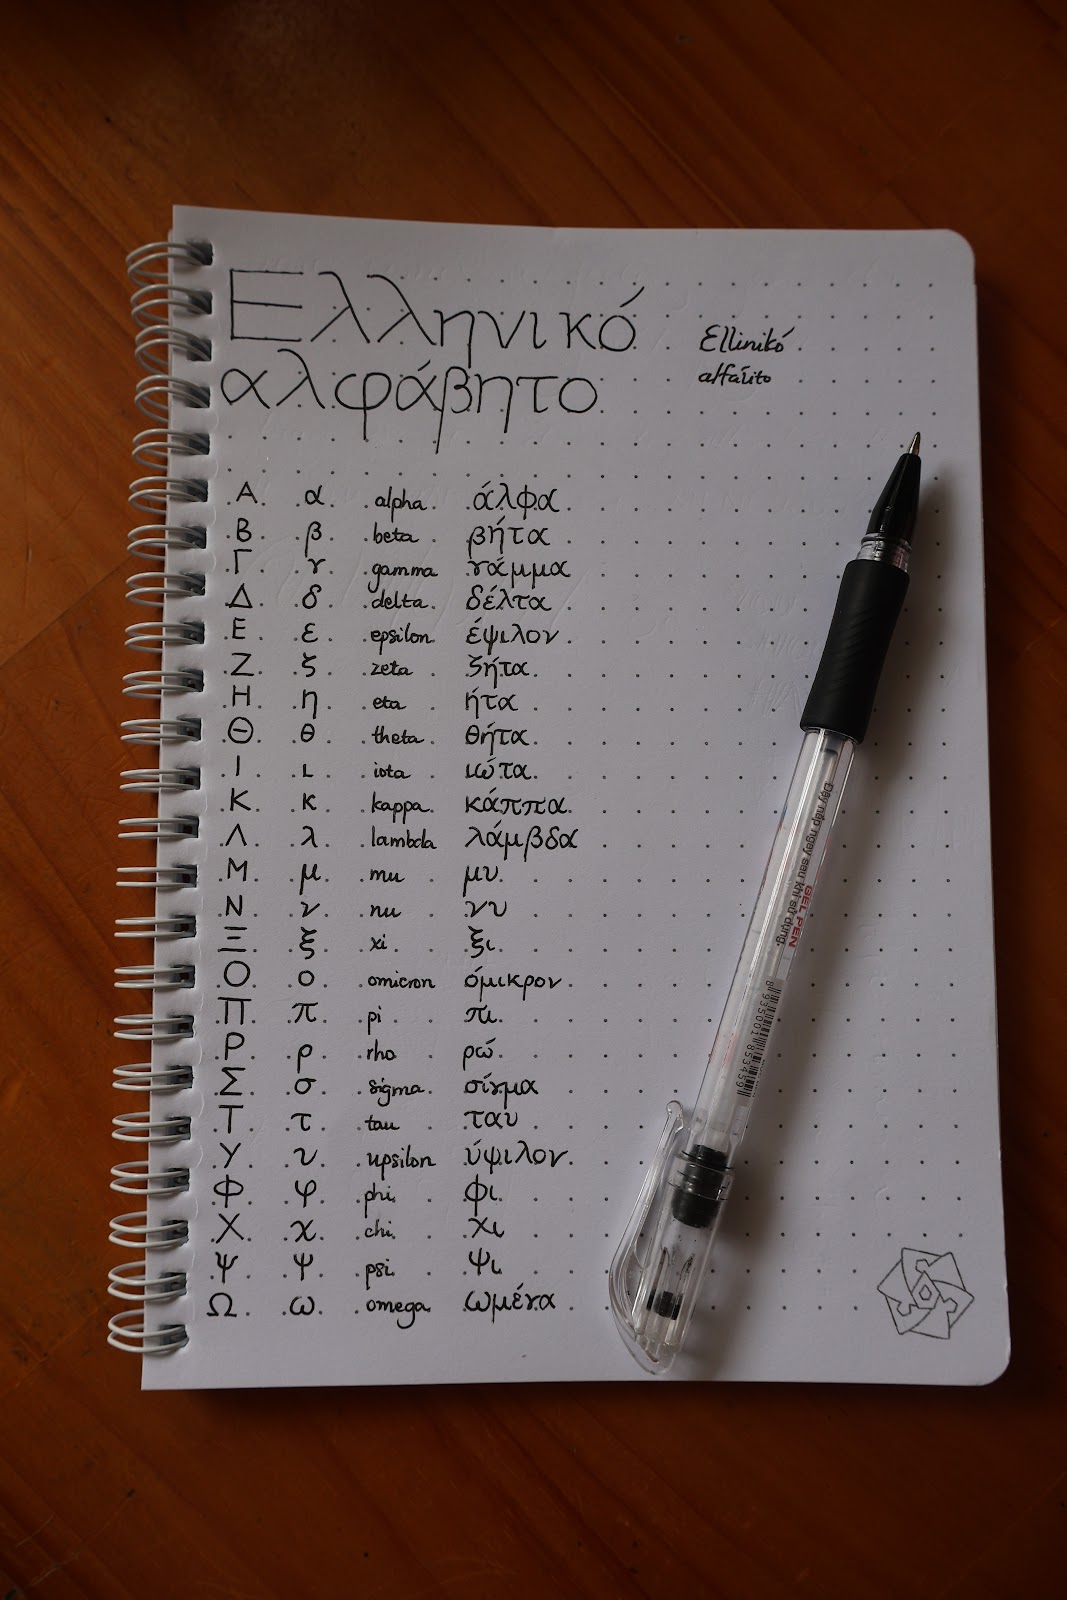 Ελληνικό
αλφάβητο
Ellinikó
Α α alpha άλφα
Β β beta βήτα
Γ γ gamma γάμμα
Δ δ delta δέλτα
Ε ε epsilon έψιλον
Ζ ζ zeta ζήτα
Η η eta ήτα
Θ θ theta θήτα
Ι ι iota ιώτα
Κ κ kappa κάππα
Λ λ lambda λάμβδα
Μ μ mu μυ
Ν ν nu νυ
Ξ ξ xi ξι
Ο ο omicron όμικρον
Π π pi πι
Ρ ρ rho ρώ
Σ σ sigma σίγμα
Τ τ tau ταυ
Υ υ upsilon ύψιλον
Φ φ phi φι
Χ χ chi χι
Ψ ψ psi ψι
Ω ω omega ωμέγα
Đậy nắp ngay sau khi sử dụng.
GEL PEN
8 935001 853459